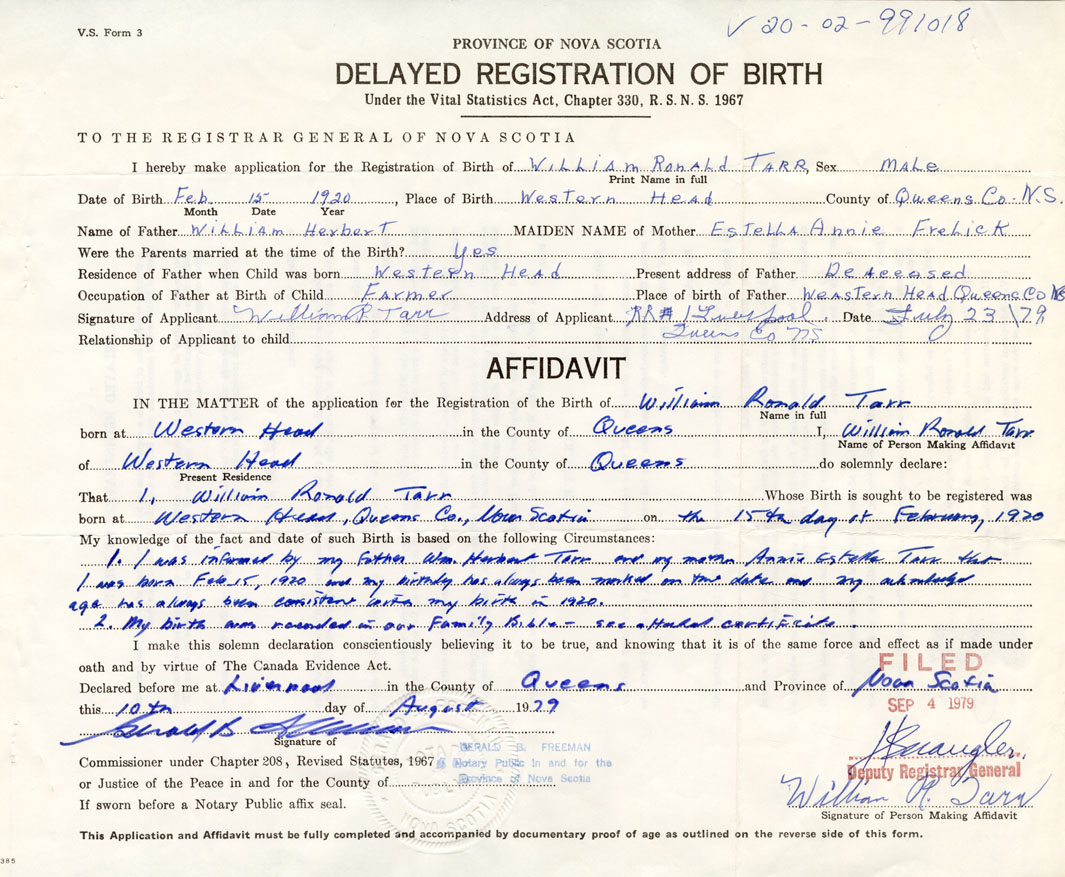 V.S. Form 3
V 20-02-991018
PROVINCE OF NOVA SCOTIA
DELAYED REGISTRATION OF BIRTH
Under the Vital Statistics Act, Chapter 330, R.S.N.S. 1967
TO THE REGISTRAR GENERAL OF NOVA SCOTIA
I hereby make application for the Registration of Birth of William Ronald Tarr, Sex Male
Print Name in full
Date of Birth Feb. 15 1920, Place of Birth Western Head County of Queens Co. N.S.
Month Date Year
Name of Father William Herbert MAIDEN NAME of Mother Estella Annie Frelick
Were the Parents married at the time of the Birth? Yes
Residence of Father when Child was born Western Head Present address of Father Deaceased
Occupation of Father at Birth of Child Farmer Place of birth of Father Weastern Head Queens Co NS
Signature of Applicant William R. Tarr Address of Applicant RR#1 Liverpool Date July 23/79
Queens Co NS
Relationship of Applicant to child
AFFIDAVIT
IN THE MATTER of the application for the Registration of the Birth of William Ronald Tarr
Name in full
born at Western Head in the County of Queens I, William Ronald Tarr
Name of Person Making Affidavit
of Western Head in the County of Queens do solemnly declare:
Present Residence
That I, William Ronald Tarr Whose Birth is sought to be registered was
born at Western Head, Queens Co., Nova Scotia on the 15th day of February, 1920
My knowledge of the fact and date of such Birth is based on the following Circumstances:
1. I was informed by my Father Wm. Herbert Tarr and my mother Annie Estella Tarr that
I was born Feb. 15, 1920 and my birthday has always been marked on that date and my
age has always been consistent with my birth in 1920.
2. My birth was recorded in our Family Bible - see attached certificate.
I make this solemn declaration conscientiously believing it to be true, and knowing that it is of the same force and effect as if made under
oath and by virtue of The Canada Evidence Act.
FILED
Declared before me at Liverpool in the County of Queens and Province of Nova Scotia
SEP 4 1979
this 10th day of August 1979
Gerald B. Freeman
Signature of
GERALD B. FREEMAN
Commissioner under Chapter 208, Revised Statutes, 1967
A Notary Public in and for the
Province of Nova Scotia
Deputy Registrar General
or Justice of the Peace in and for the County of
William R. Tarr
Signature of Person Making Affidavit
If sworn before a Notary Public affix seal.
NOVA SCOTIA
This Application and Affidavit must be fully completed and accompanied by documentary proof of age as outlined on the reverse side of this form.
385